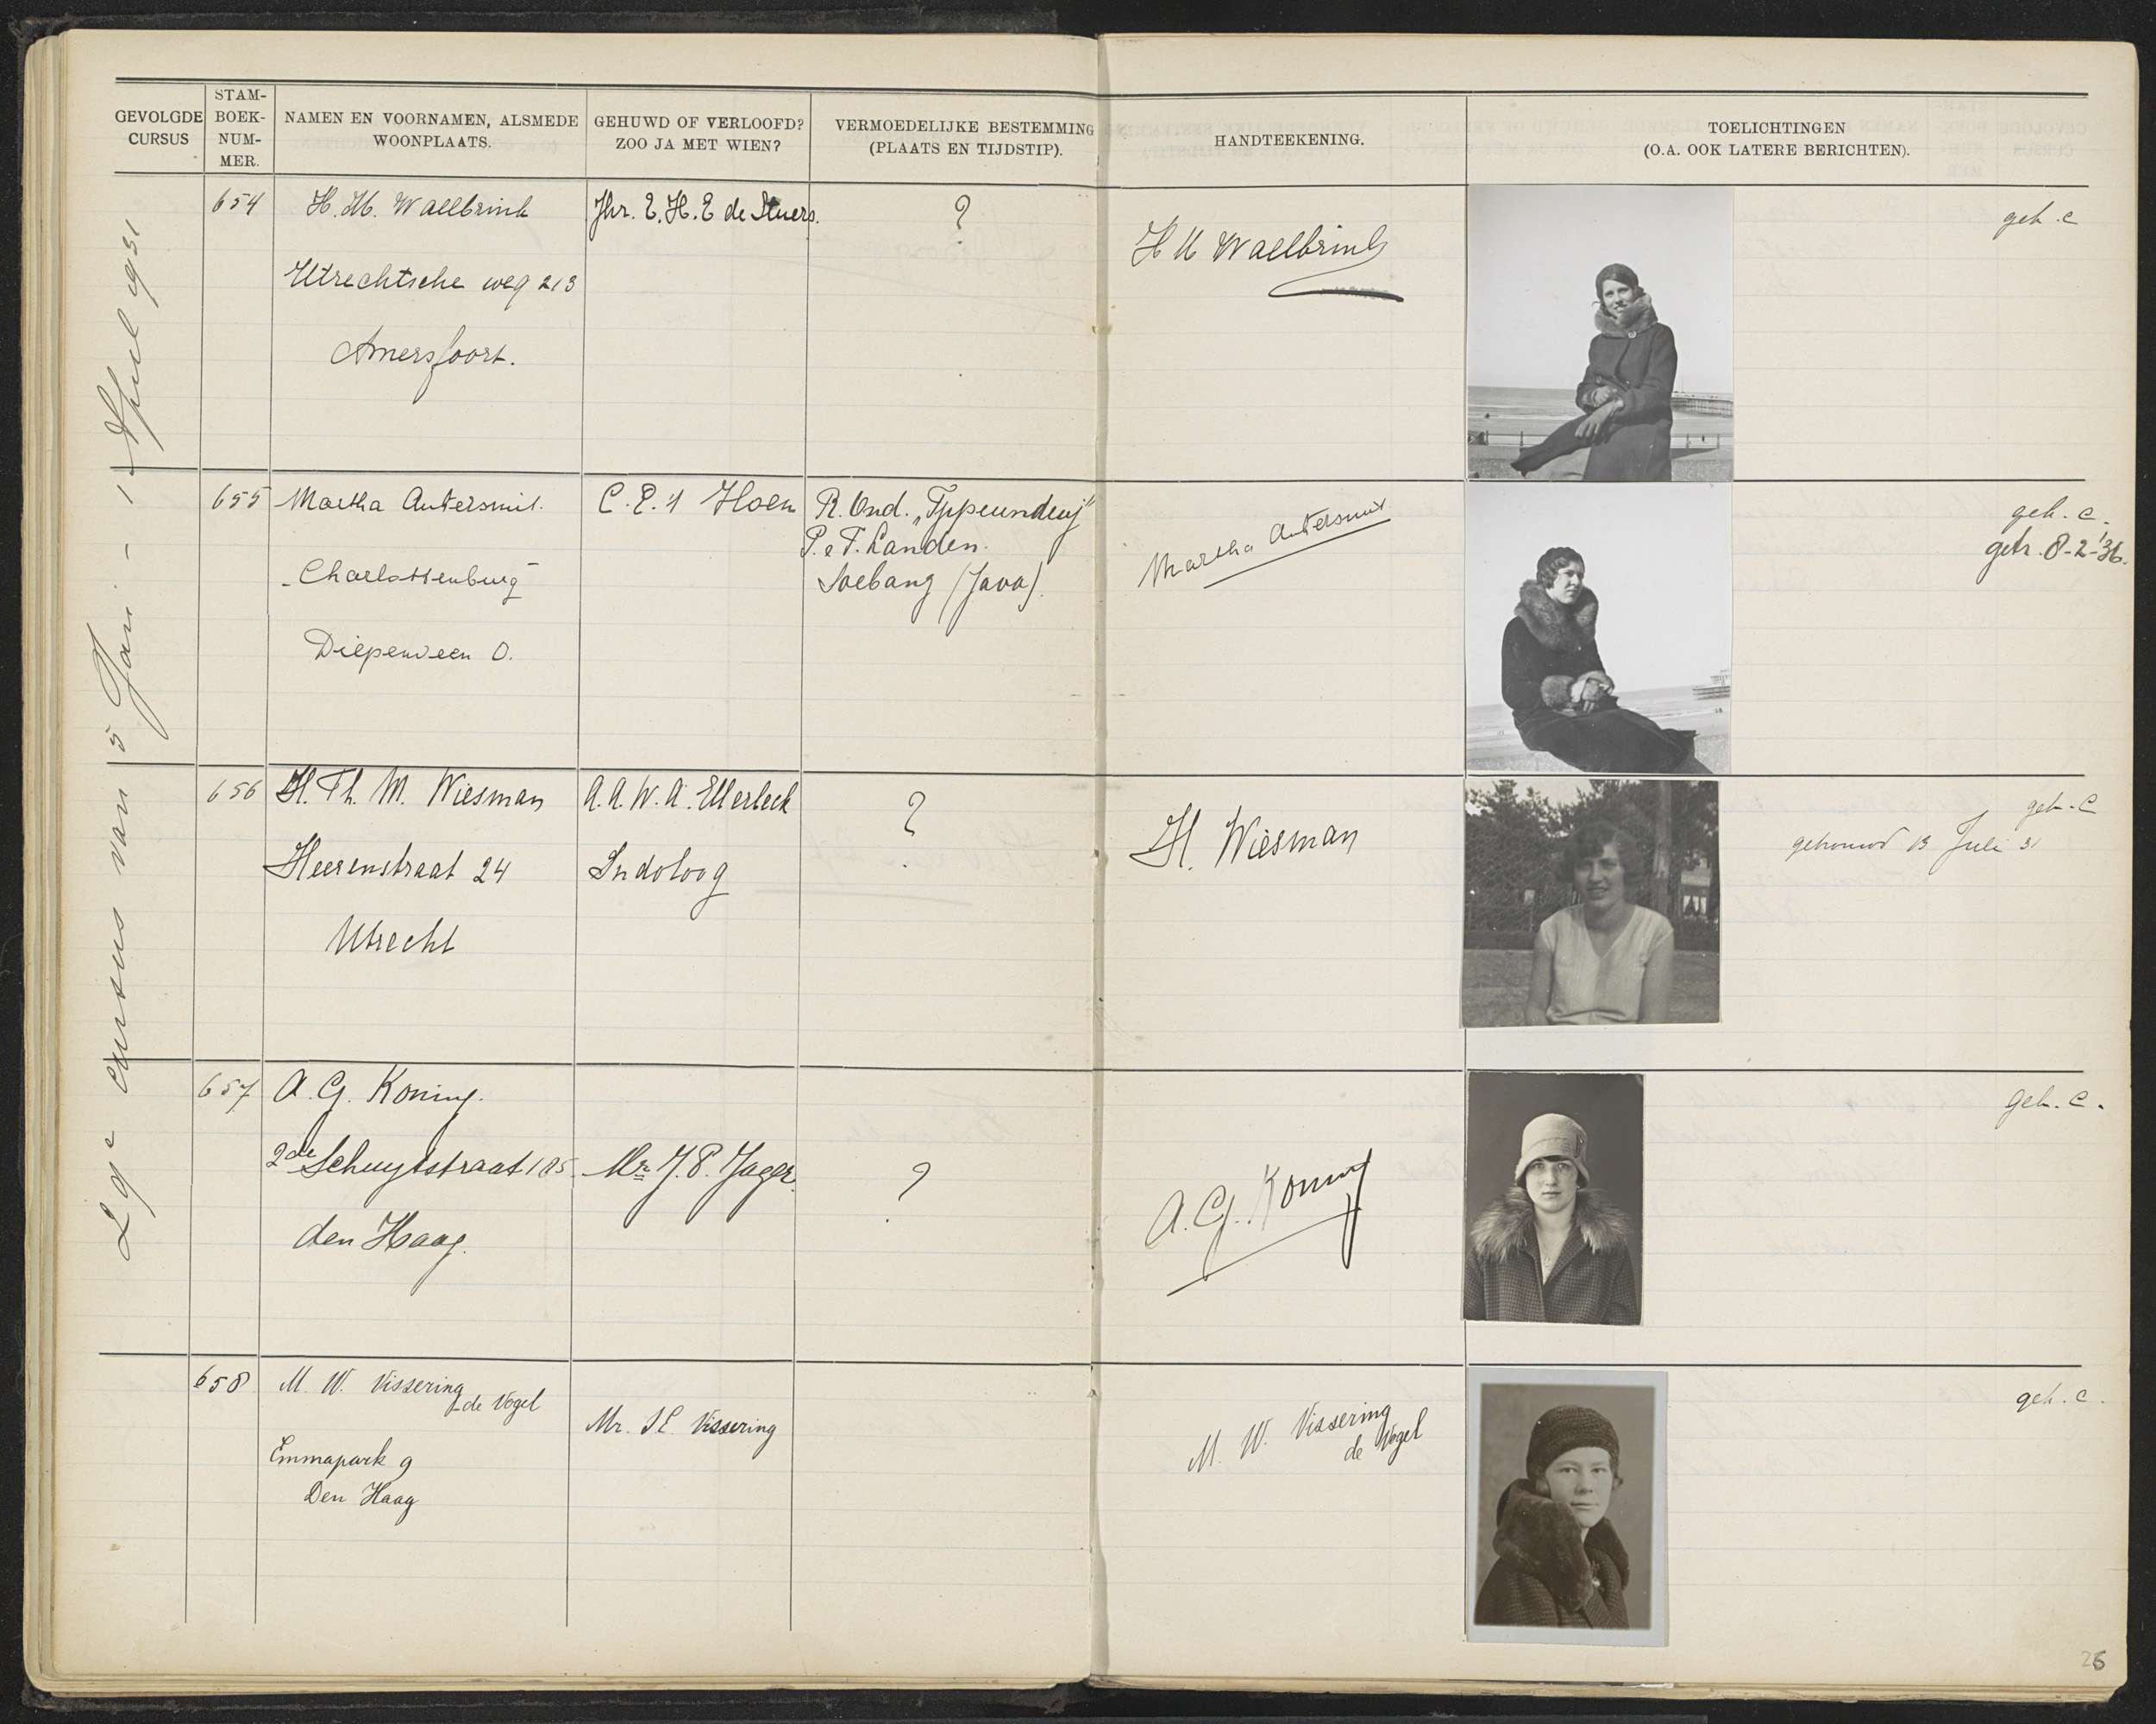 GEVOLGDE CURSUS
STAM-BOEK-NUM-MER.
NAMEN EN VOORNAMEN, ALSMEDE WOONPLAATS.
GEHUWD OF VERLOOFD? ZOO JA MET WIEN?
VERMOEDELIJKE BESTEMMING (PLAATS EN TIJDSTIP).
HANDTEEKENING.
TOELICHTINGEN
(O.A. OOK LATERE BERICHTEN).
cursus van 5 Jan. - 1 April 1931
654
H. M. Waelbrink
Utrechtsche weg 213
Amersfoort.
Jhr. E. H. E de Stuers.
?
H M Waelbrink
geh. c
655
Martha Antersmit.
"Charlottenburg"
Diepenveen O.
C. P. 't Hoen
R. Ond.
P. & T. Landen.
Soebang (Java).
Martha Antersmit
geh. c.
getr. 8-2-'36.
656
H. Th. M. Wiesman
Heerenstraat 24
Utrecht
A. A. W. A. Ellerbeck
Indoloog
?
H. Wiesman
geh. C
getrouwd 13 Juli 31
657
A. G. Koning.
2de Schuytstraat 185.
den Haag.
Mr J. P. Jager.
?
A. G. Koning
geh. C.
658
M. W. Vissering
de Vogel
Emmapark 9
Den Haag
Mr. S E Vissering
M. W. Vissering
de Vogel
geh. c.
26